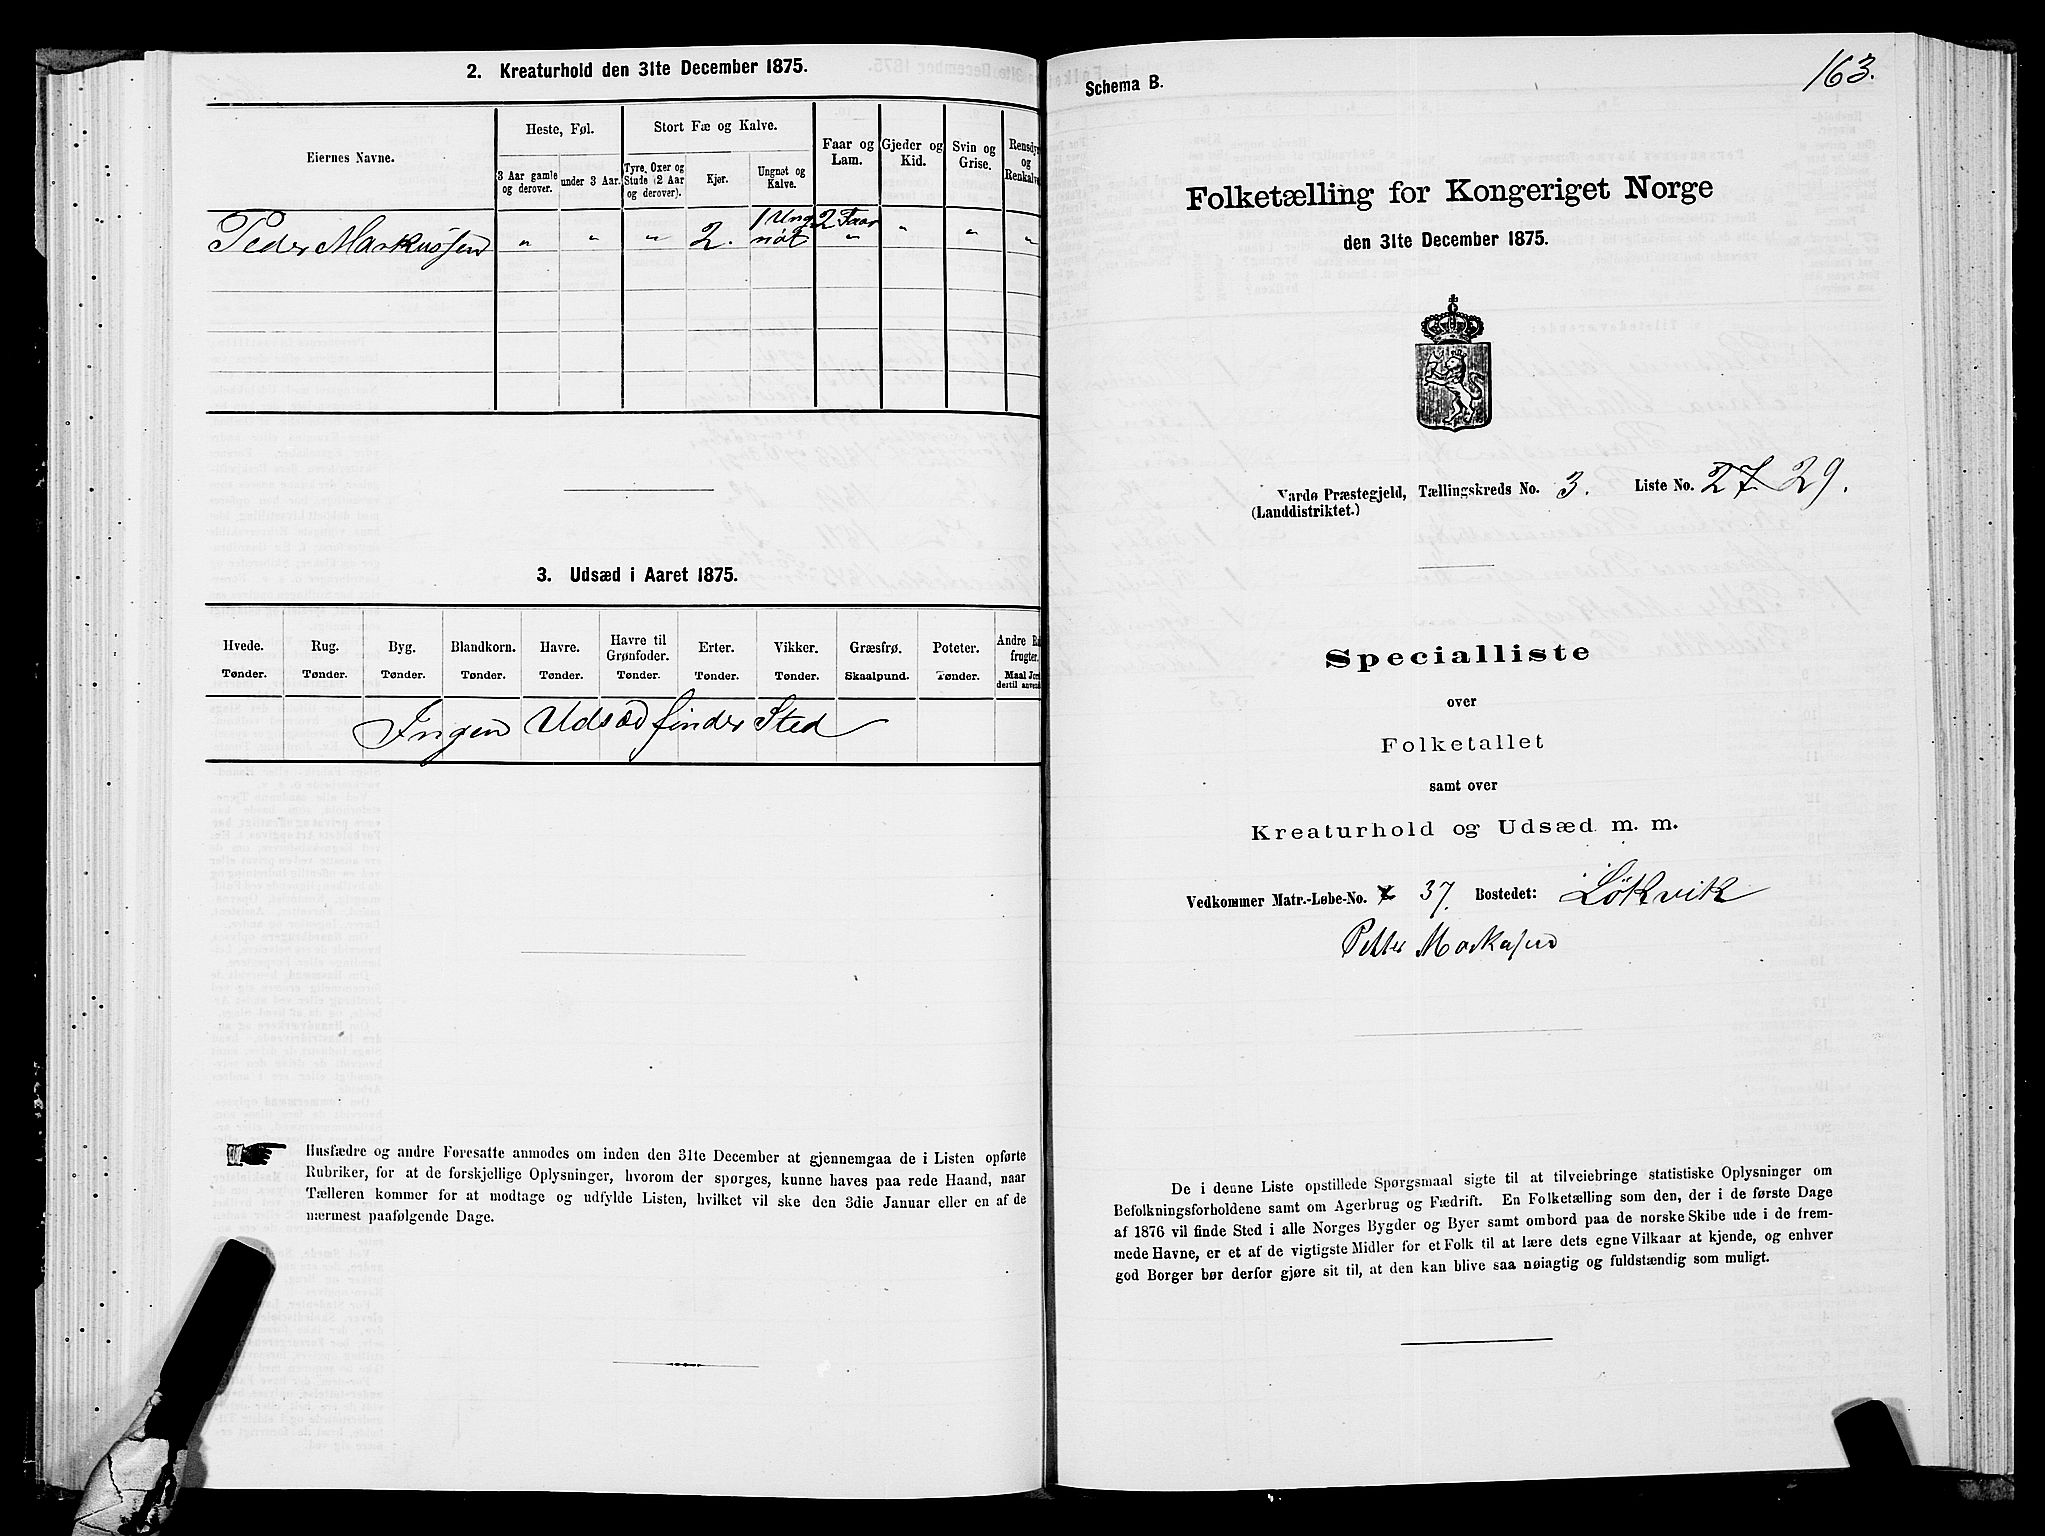 2. Kreaturhold den 31te December 1875.
Eiernes Navne.
Heste, Føl.
Stort Fæ og Kalve.
Faar og Lam.
Gjeder og Kid.
Svin og Grise.
Rensdyr og Renkalve
3 Aar gamle og derover.
under 3 Aar.
Tyre, Oxer og Stude (2 Aar og derover).
Kjør.
Ungnøt og Kalve.
Peder Markussen " " " 2. 1 Ung nöt 2 Faar " " " "
3. Udsæd i Aaret 1875.
Hvede. Rug. Byg. Blandkorn. Havre. Havre til Grønfoder. Erter. Vikker. Græsfrø. Poteter. Andre frugter.
Tønder. Tønder. Tønder. Tønder. Tønder. Tønder. Tønder. Tønder. Skaalpund. Tønder. Maal Jord dertil anvendt
Ingen Udsæd finder Sted
Husfædre og andre Foresatte anmodes om inden den 31te December at gjennemgaa de i Listen opførte
Rubriker, for at de forskjellige Oplysninger, hvorom der spørges, kunne haves paa rede Haand, naar
Tælleren kommer for at modtage og udfylde Listen, hvilket vil ske den 3die Januar eller en af de
nærmest paafølgende Dage.
163.
Schema B.
Folketælling for Kongeriget Norge
den 31te December 1875.
Vardø Præstegjeld, Tællingskreds No. 3. Liste No. 27 29.
(Landdistriktet.)
Specialliste
over
Folketallet
samt over
Kreaturhold og Udsæd m. m.
Vedkommer Matr.-Løbe-No. 37. Bostedet: Lökvik
Petter Markusen
De i denne Liste opstillede Spørgsmaal sigte til at tilveiebringe statistiske Oplysninger om
Befolkningsforholdene samt om Agerbrug og Fædrift. En Folketælling som den, der i de første Dage
af 1876 vil finde Sted i alle Norges Bygder og Byer samt ombord paa de norske Skibe ude i de frem-
mede Havne, er et af de vigtigste Midler for et Folk til at lære dets egne Vilkaar at kjende, og enhver
god Borger bør derfor gjøre sit til, at den kan blive saa nøiagtig og fuldstændig som muligt.